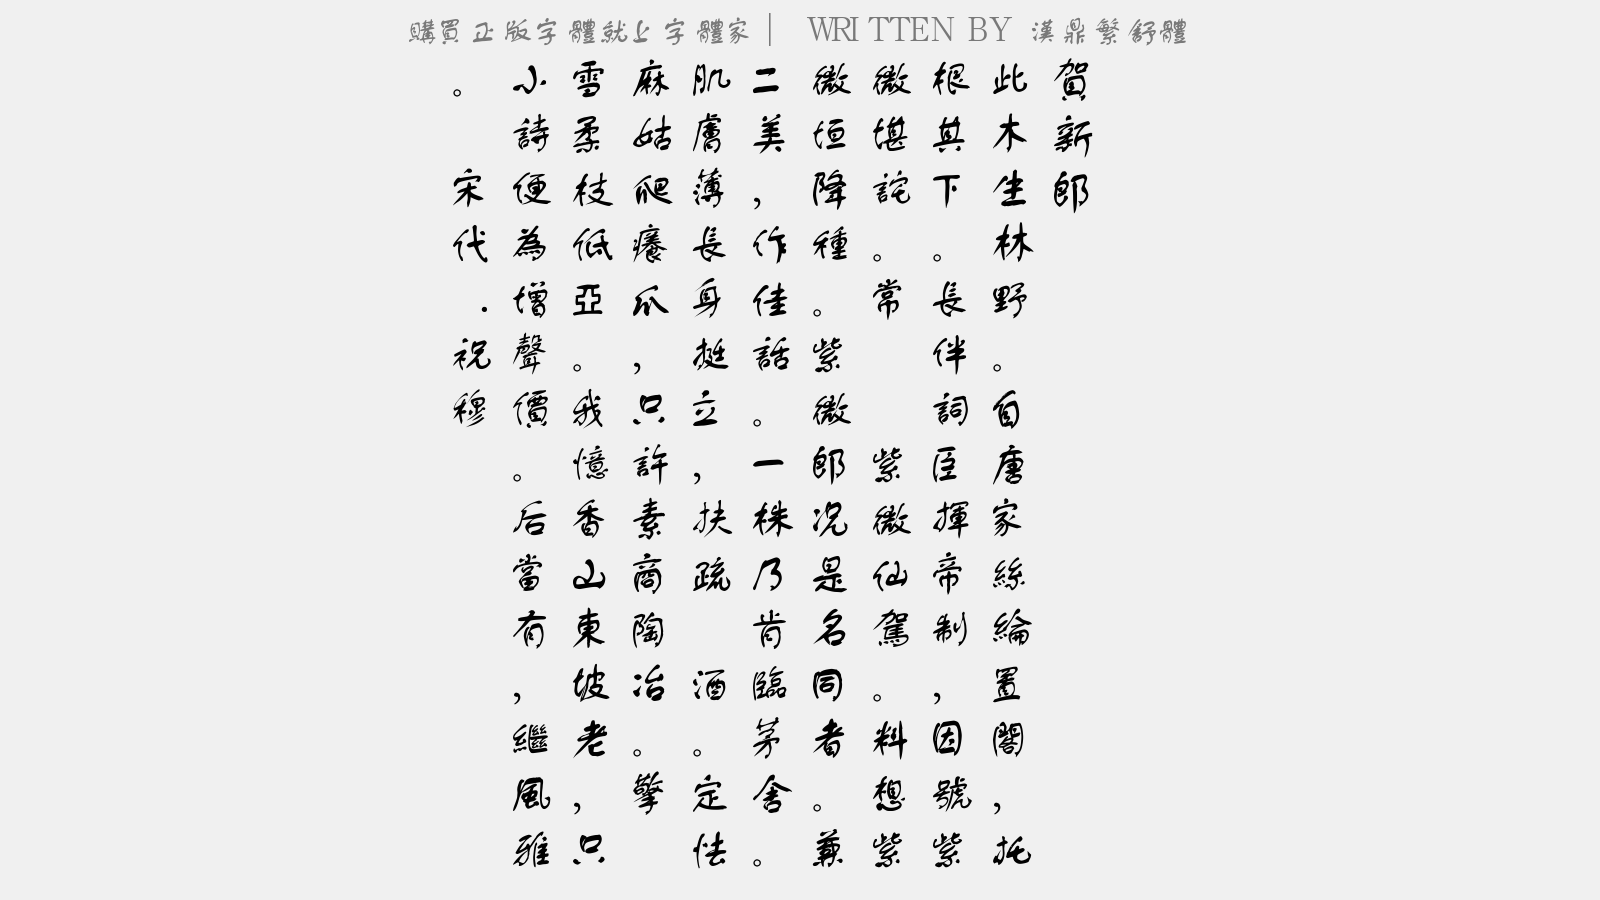 購買正版字體就上字體家│ WRITTEN BY 漢鼎繁舒體
賀新郎
此木生林野。自唐家絲綸置閣，托
根其下。長伴詞臣揮帝制，因號紫
微堪詫。常 紫微仙駕。料想紫
微垣降種。紫微郎況是名同者。兼
二美，作佳話。一株乃肯臨茅舍。
肌膚薄長身挺立，扶疏 酒。定怯
麻姑爬癢爪，只許素商陶冶。擎
雪柔枝低亞。我憶香山東坡老，只
小詩便為增聲價。后當有，繼風雅
。 宋代·祝穆